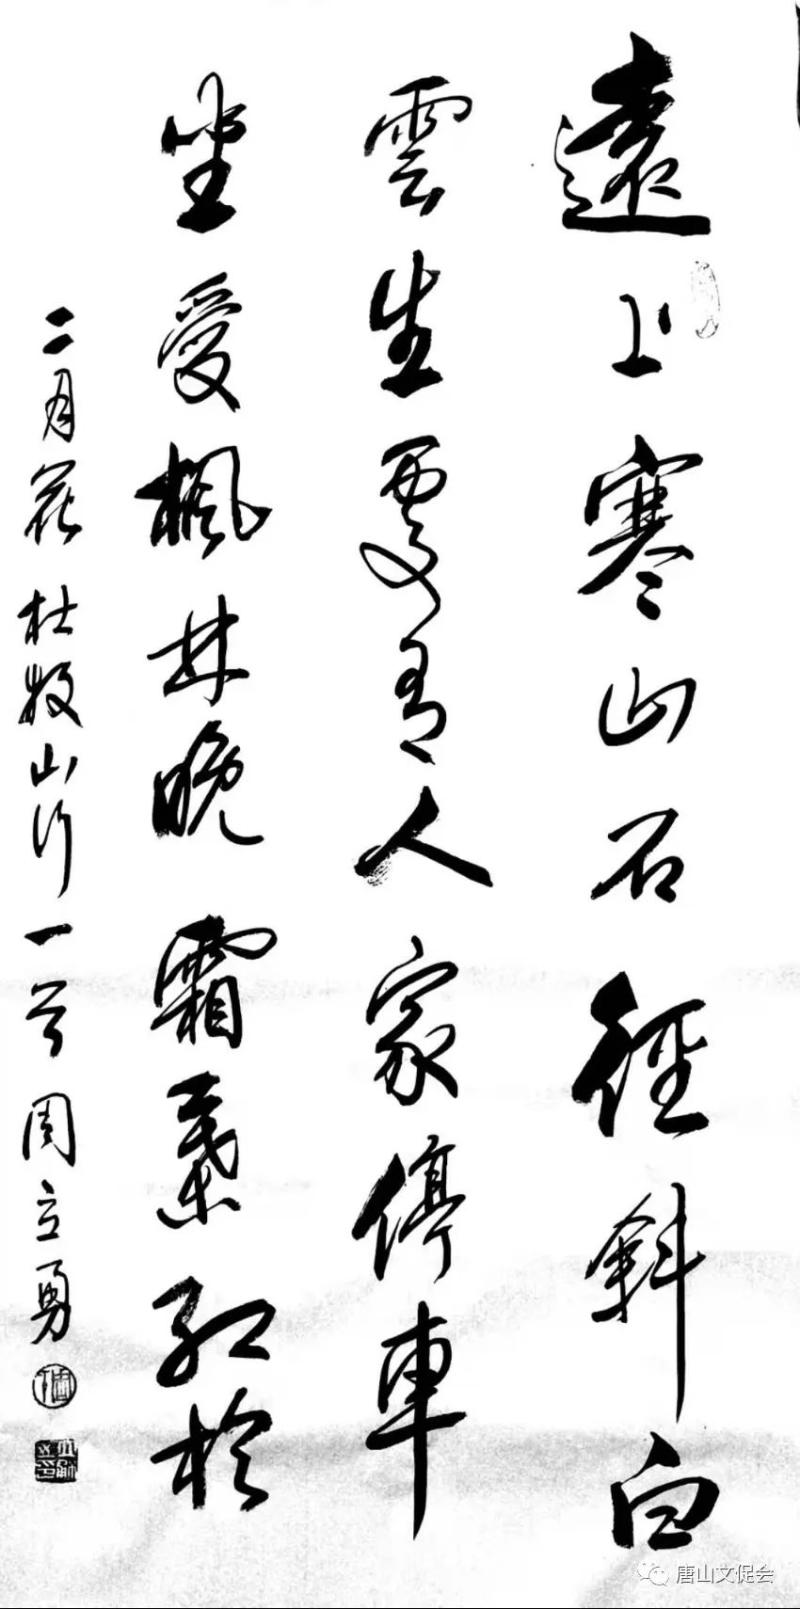 遠上寒山石徑斜白
雲生處有人家停車
坐愛楓林晚霜葉紅於
二月花 杜牧山行一首 周立勇
唐山文促会